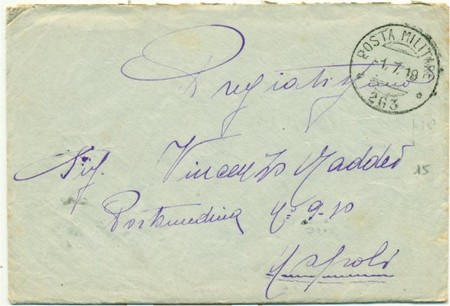 POSTA MILITARE
-1.7.18
263
Pregiatissimo
Sig. Vincenzo Maddei
Portamedina N° 9-10
Napoli
15